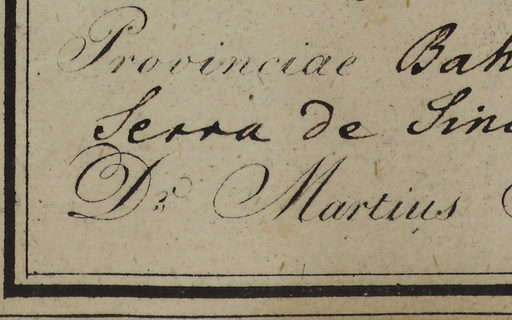 Provinciae Bah
Serra de Sin
Dr. Martius